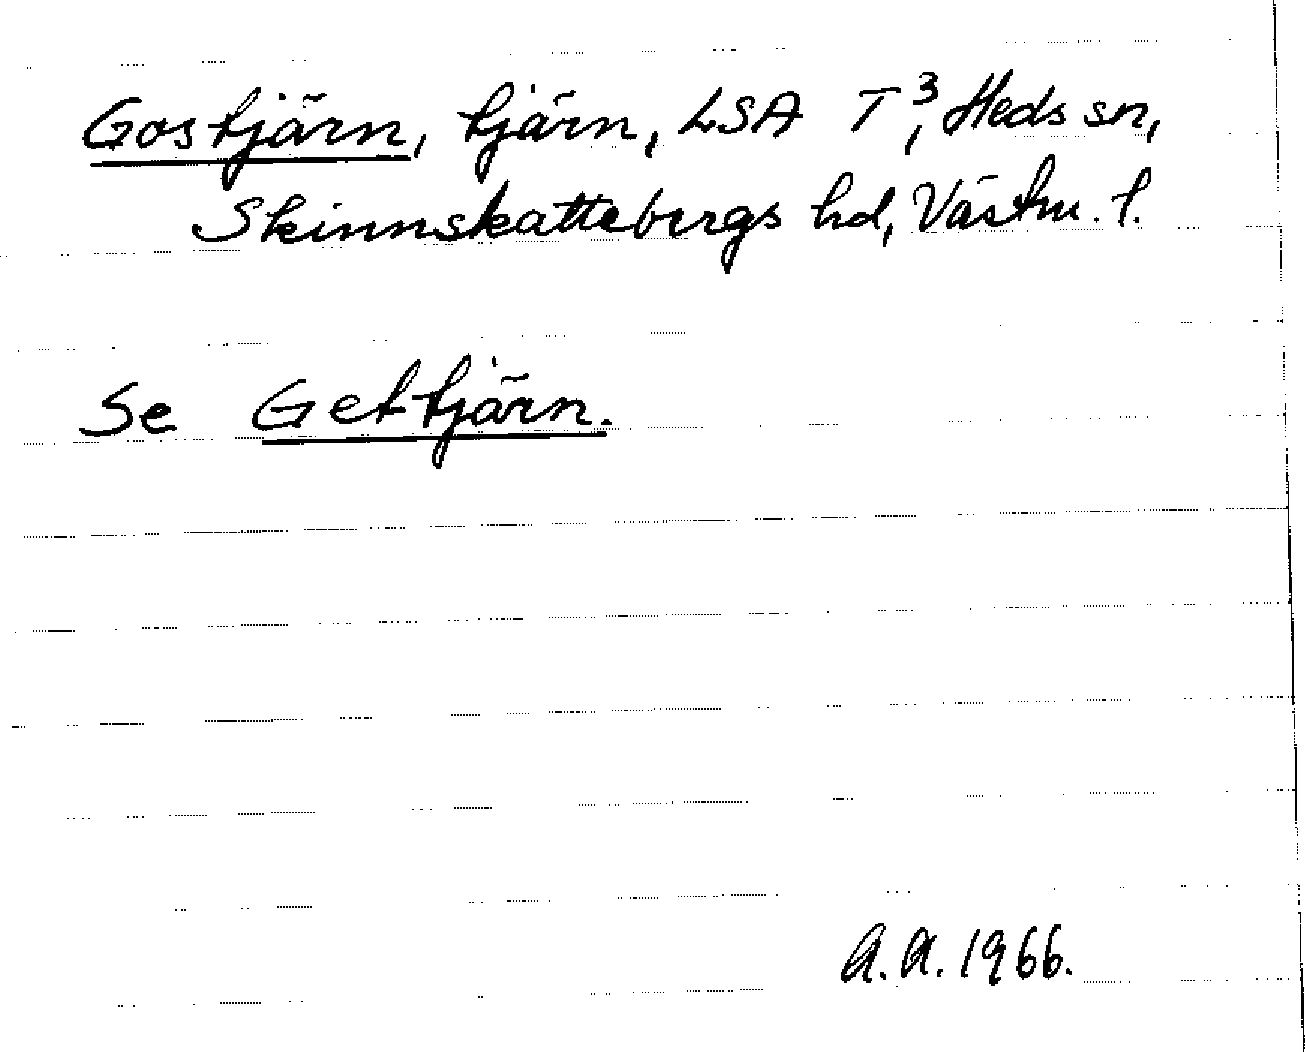 Gostjärn, tjärn, LSA T³, Heds sn,
Skinnskattebergs hd, Västm. l.
Se Gettjärn.
A.A. 1966.